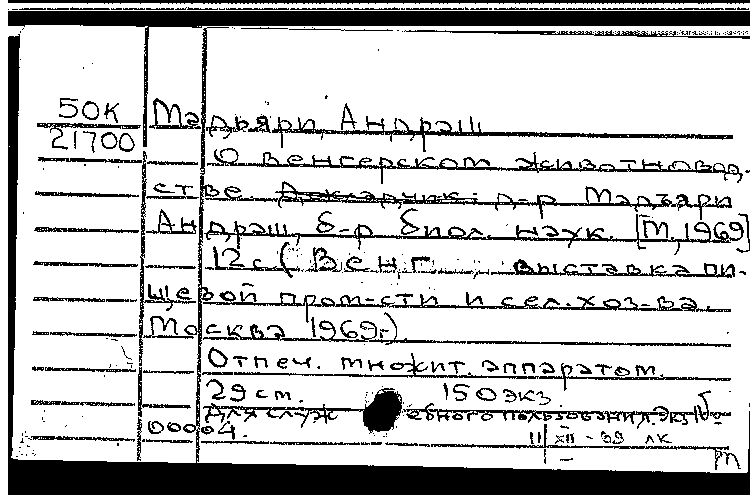 50К Мадьяри, Андраш
21700
О венгерском животновод-
стве. Докладчик: д-р Мадьяри
Андраш, б-р биол. наук. [М., 1969]
12с (Венг. выставка пи-
щевой пром-сти и сел. хоз-ва.
Москва 1969г.)
Отпеч. множит. аппаратом.
29 см. 150 экз
Для служебного пользования. Экз №
00004.
II XII - 99 ЛК
М